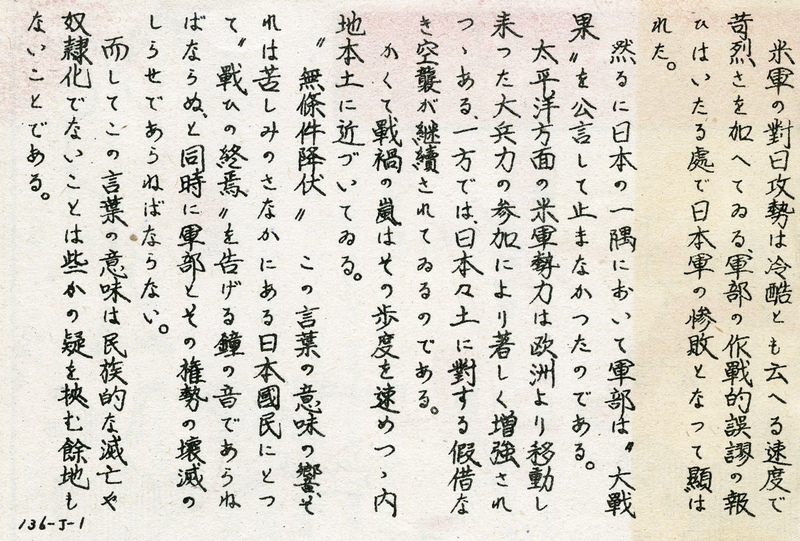 米軍の對日攻勢は冷酷とも云へる速度で
苛烈さを加へてゐる、軍部の作戰的誤謬の報
ひはいたる處で日本軍の慘敗となつて顯は
れた。
然るに日本の一隅において軍部は〝大戰
果〟を公言して止まなかつたのである。
太平洋方面の米軍勢力は欧洲より移動し
来つた大兵力の参加により著しく増強され
つゝある、一方では、日本々土に對する假借な
き空襲が継續されてゐるのである。
かくて戰禍の嵐はその歩度を速めつゝ内
地本土に近づいてゐる。
〝無條件降伏〟 この言葉の意味の響、そ
れは苦しみのさなかにある日本國民にとつ
て〝戰ひの終焉〟を告げる鐘の音であらね
ばならぬ、と同時に軍部とその権勢の壊滅の
しらせであらねばならない。
而してこの言葉の意味は民族的な滅亡や
奴隷化でないことは些かの疑を挾む餘地も
ないことである。
136-J-1